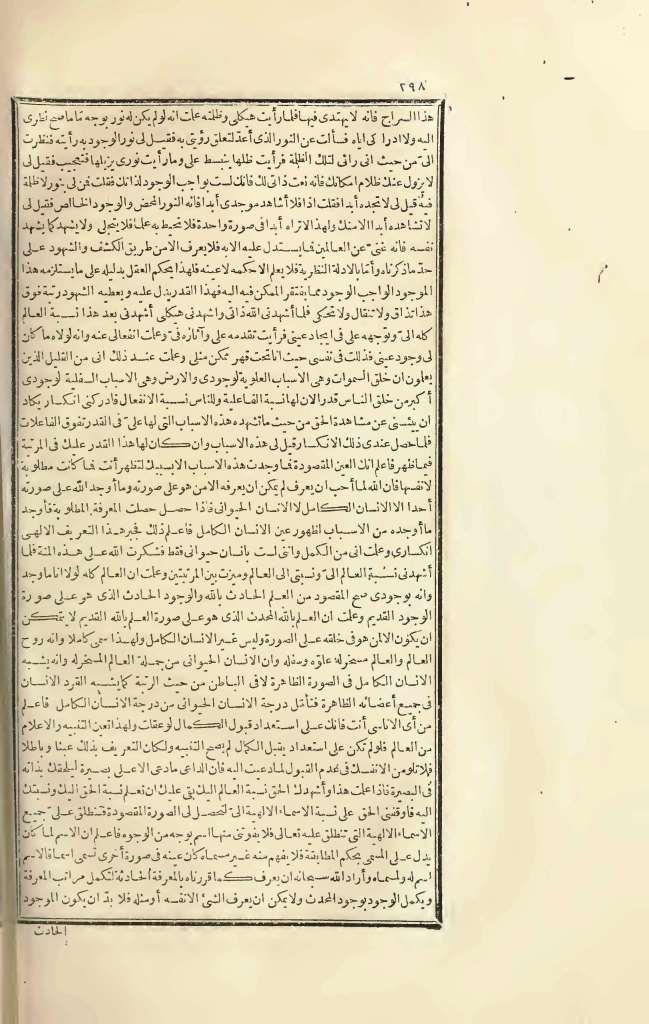 ٢٩٨
هذا السراج فانه لا يهتدى فيها فلما رأيت هيكلى وظلمته علمت انه لو لم يكن له نور بوجه تا ما صح نظرى
اليه ولا ادراكى اياه فسألت عن النور الذى أعد لتعلق رؤيتى به فقيل لى نور الوجود به رأيته فنظرت
الىّ من حيث انى راقى لتلك الظلمة فرأيت ظلها ينبسط علىّ وما رأيت نورى يزيلها فتعجبت فقيل لى
لا يزول عنك ظلام امكانك فانه نعت ذاتى لك فانك لست بواجب الوجود لذاتك فقلت فمن لى بنور لا ظلمة
فيه قيل لى لا تجده أبدا فقلت اذا فلا أشاهد موجدى أبدا فانه النور المحض والوجود الخالص فقيل لى
لا تشاهده أبدا الا منك ولهذا لا تراه أبدا فى صورة واحدة فلا تحيط به علما فلا يتجلى ولا يشهد كما يشهد
نفسه فانه غنىّ عن العالمين فما يستدل عليه الا به فلا يعرف الا من طريق الكشف والشهود على
حدّ ما ذكرناه وأمّا بالادلة النظرية فلا يعلم الا حكمه لا عينه فلهذا يحكم العقل بدليله على ما يستلزمه هذا
الموجود الواجب الوجود مما يفتقر الممكن فيه اليه فهذا القدر يدل عليه ويعطيه الشهود رتبة فوق
هذا تذاق ولا تنقال ولا تحكى فلما أشهدنى الله ذاتى واشهدنى هيكلى أشهدنى بعد هذا نسبة العالم
كله الىّ وتوجهه علىّ فى ايجاد عينى فرأيت تقدمه علىّ وآثاره فىّ وعلمت انفعالى عنه وانه لولاه ما كان
لى وجود عينى فذللت فى نفسى حيث انا تحت قهر تمكن مثلى وعلمت عند ذلك انى من القليل الذين
يعلمون ان خلق السموات وهى الاسباب العلوية لوجودى والارض وهى الاسباب السفلية لوجودى
أكبر من خلق الناس قدرا لان لها نسبة الفاعلية وللناس نسبة الانفعال فادركنى انكسار يكاد
ان يؤيسنى عن مشاهدة الحق من حيث ما تشهده هذه الاسباب التى لها علىّ فى القدر تفوق الفاعلات
فلما حصل عندى ذلك الانكسار قيل لى هذه الاسباب وان كان لها هذا القدر عليك فى المرتبة
فيما ظهر فاعلم انك العين المقصودة فما وجدت هذه الاسباب الا بسببك لتظهر أنت فما كانت مطلوبة
لانفسها فان الله لما أحب ان يعرف لم يمكن ان يعرفه الا من هو على صورته وما أوجد الله على صورته
أحدا الا الانسان الكامل لا الانسان الحيوانى فاذا حصل حصلت المعرفة المطلوبة فأوجد
ما أوجده من الاسباب لظهور عين الانسان الكامل فاعلم ذلك فجبر هذا التعريف الالهى
انكسارى وعلمت انى من الكمل وانى لست بانسان حيوانى فقط فشكرت الله على هذه المنة فلما
أشهدنى نسبة العالم الىّ ونسبتى الى العالم وميزت بين المرتبتين وعلمت ان العالم كله لولا انا ما وجد
وانه بوجودى صح المقصود من العلم الحادث بالله والوجود الحادث الذى هو على صورة
الوجود القديم وعلمت ان العلم بالله المحدث الذى هو على صورة العلم بالله القديم لا يتمكن
ان يكون الا لمن هو فى خلقه على الصورة وليس غير الانسان الكامل ولهذا سمى كاملا وانه روح
العالم والعالم مسخر له علوّه وسفله وان الانسان الحيوانى من جملة العالم المسخر له وانه يشبه
الانسان الكامل فى الصورة الظاهرة لا فى الباطن من حيث الرتبة كما يشبه القرد الانسان
فى جميع أعضائه الظاهرة فتأمل درجة الانسان الحيوانى من درجة الانسان الكامل فاعلم
من أى الاناسى أنت فانك على استعداد قبول الكمال لو عقلت ولهذا تعين التنبيه والاعلام
من العالم فلو لم تكن على استعداد يقبل الكمال لم يصح التنبيه ولكان التعريف بذلك عبثا وباطلا
فلا تلومن الا نفسك فى عدم القبول لما دعيت اليه فان الداعى ما دعى الا على بصيرة ليلحقك بذاته
فى البصيرة فاذا علمت هذا وأشهدك الحق نسبة العالم اليك بقى عليك ان تعلم نسبة الحق اليك ونسبتك
اليه فأوقفنى الحق على نسبة الاسماء الالهية الىّ لتحصل لى الصورة المقصودة فتنطلق علىّ جميع
الاسماء الالهية التى تنطلق عليه تعالى فلا يفوتنى منها اسم بوجه من الوجوه فاعلم ان الاسم لما كان
يدل على المسمى بحكم المطابقة فلا يفهم منه غير مسماه كان عينه فى صورة أخرى تسمى اسما فالاسم
اسم له ولمسماه وأراد الله سبحانه ان يعرف كما قررناه بالمعرفة الحادثة لتكمل مراتب المعرفة
ويكمل الوجود بوجود المحدث ولا يمكن ان يعرف الشئ الا نفسه أو مثله فلا بدّ ان يكون الموجود
الحادث